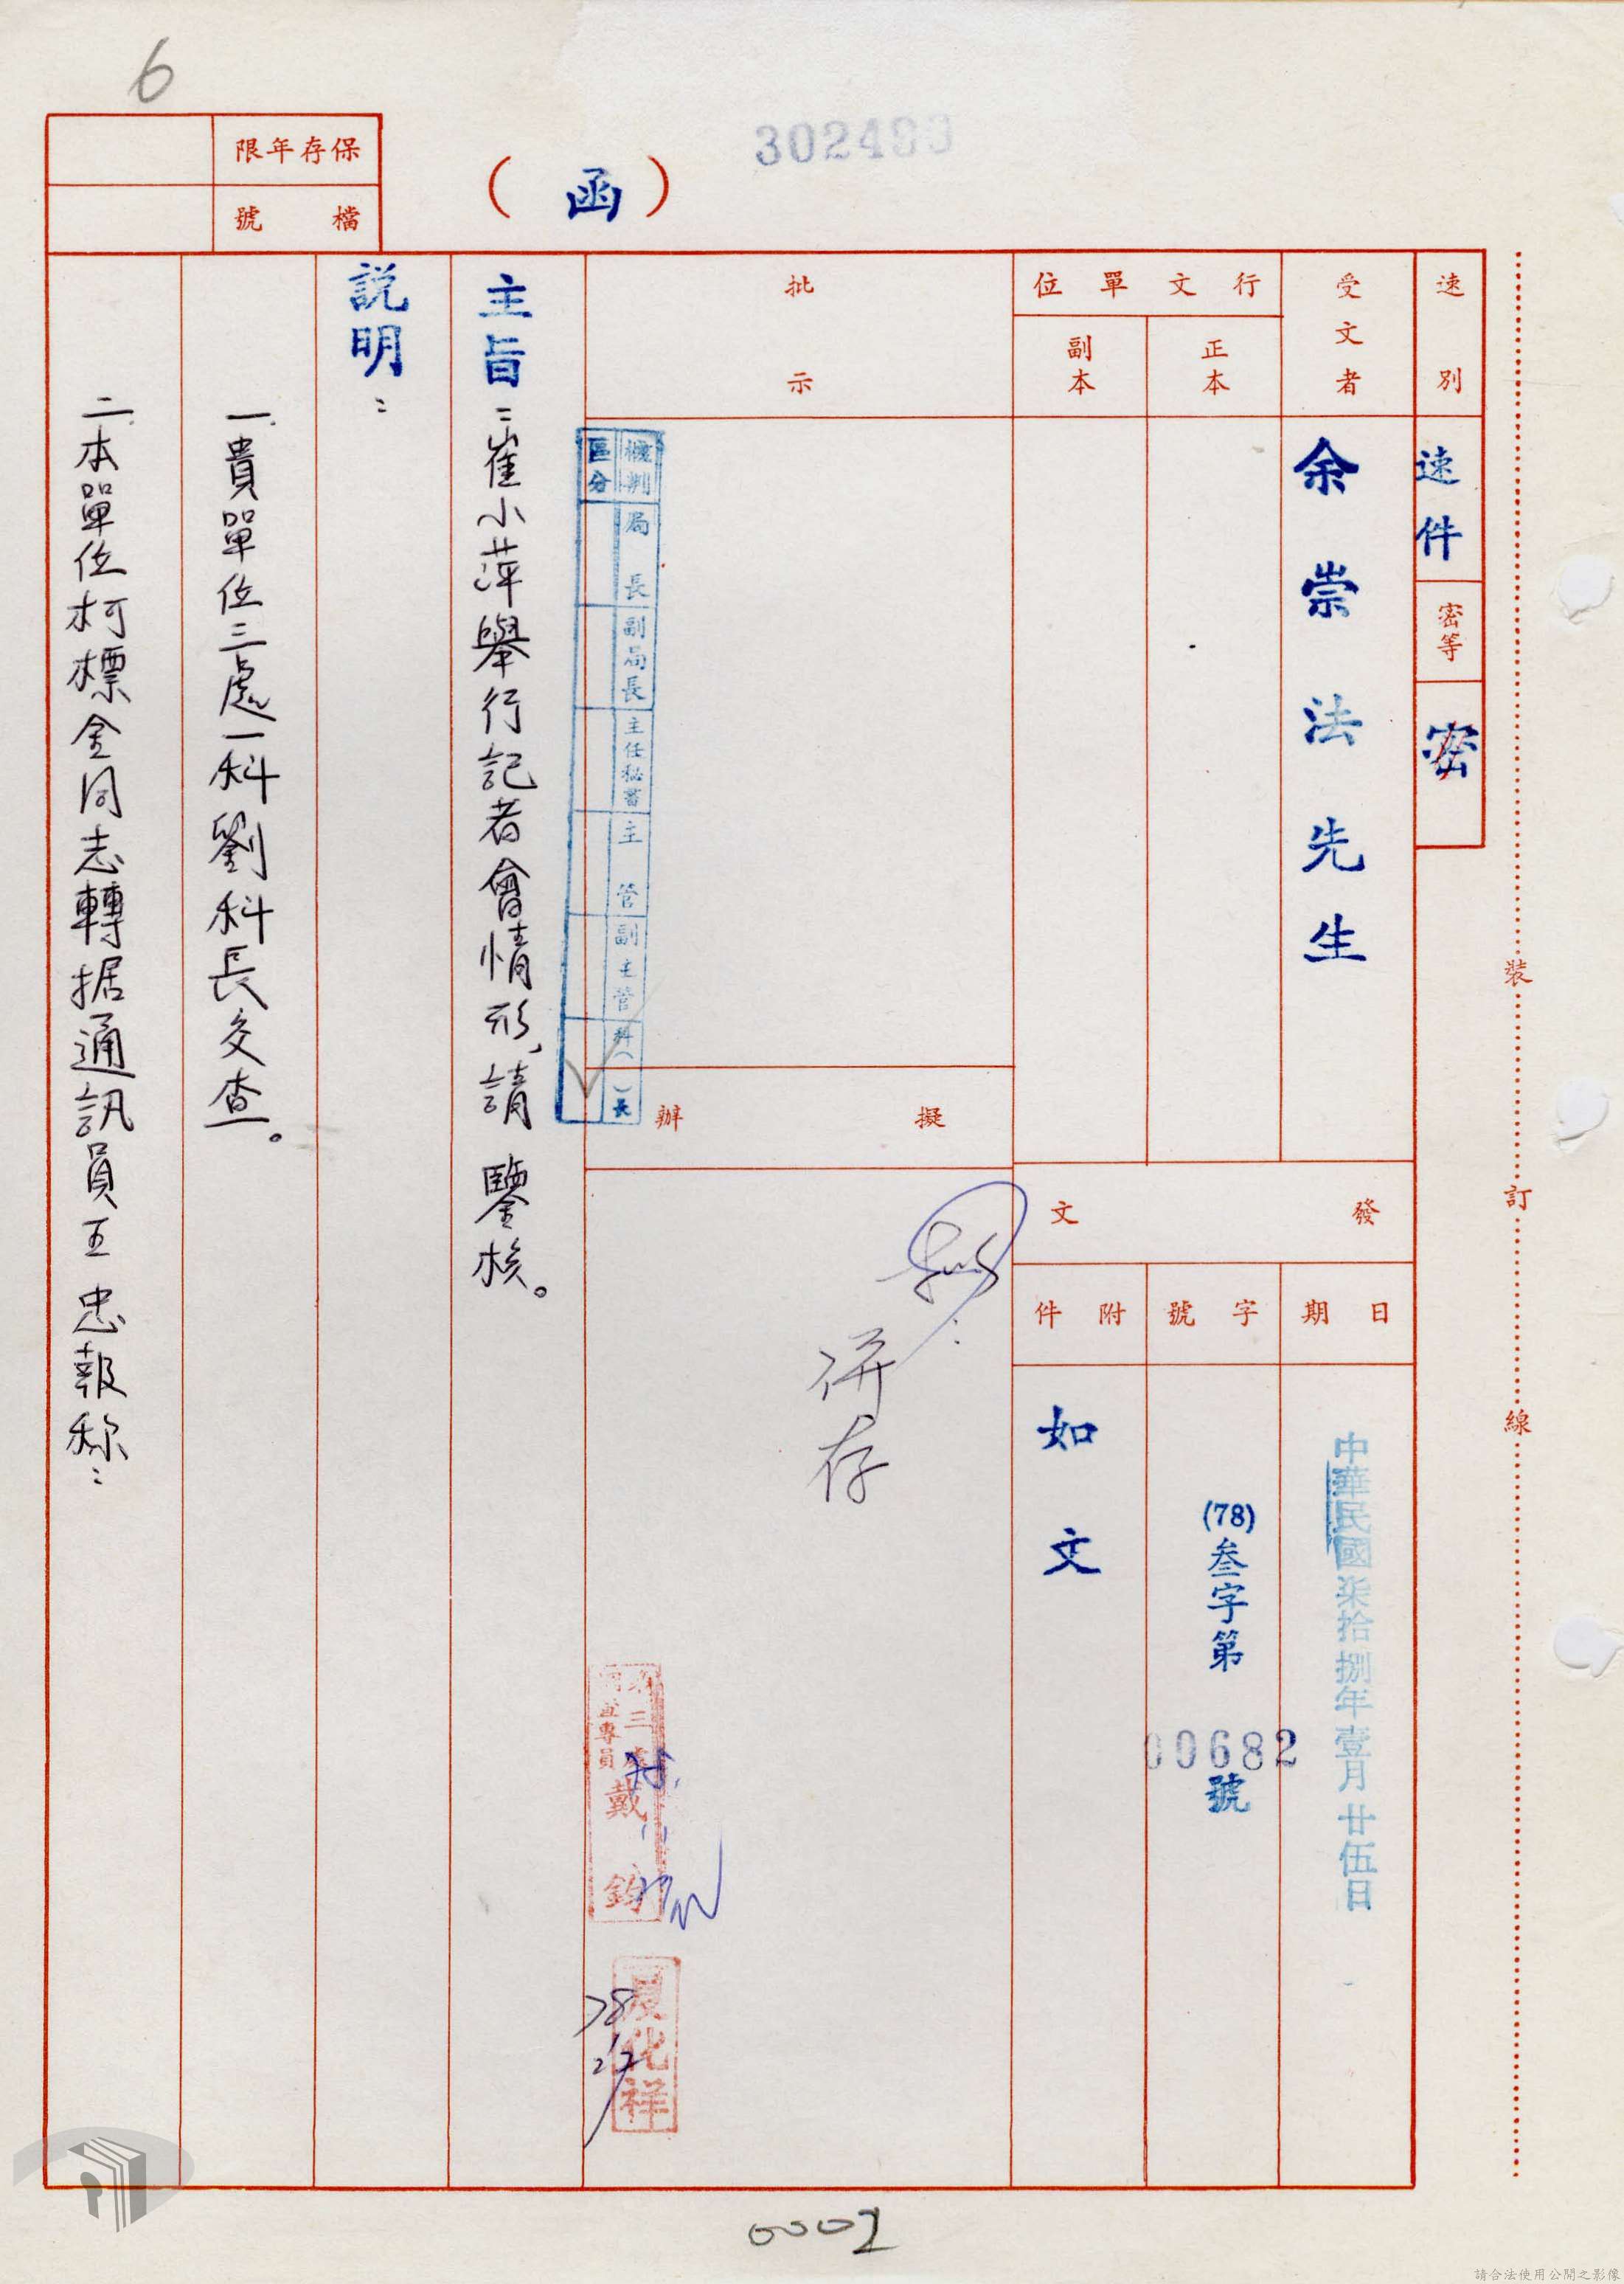 6
302483
保存年限
檔號
（函）
速別
速件
密等
密
受文者
余崇法先生
行文單位
正本
副本
發文
日期
字號
附件
中華民國柒拾捌年壹月廿伍日
(78)叁字第
00682
號
如文
批示
擬辦
併存
區分
機判
局長
副局長
主任秘書
主管
副主管
科（）長
第三處
專員
戴鈞
夏化祥
78
主旨：崔小萍舉行記者會情形，請 鑒核。
説明：
一、貴單位三處一科劉科長交查。
二、本單位柯標金同志轉据通訊員王忠報称：
裝
訂
線
0002
請合法使用公開之影像